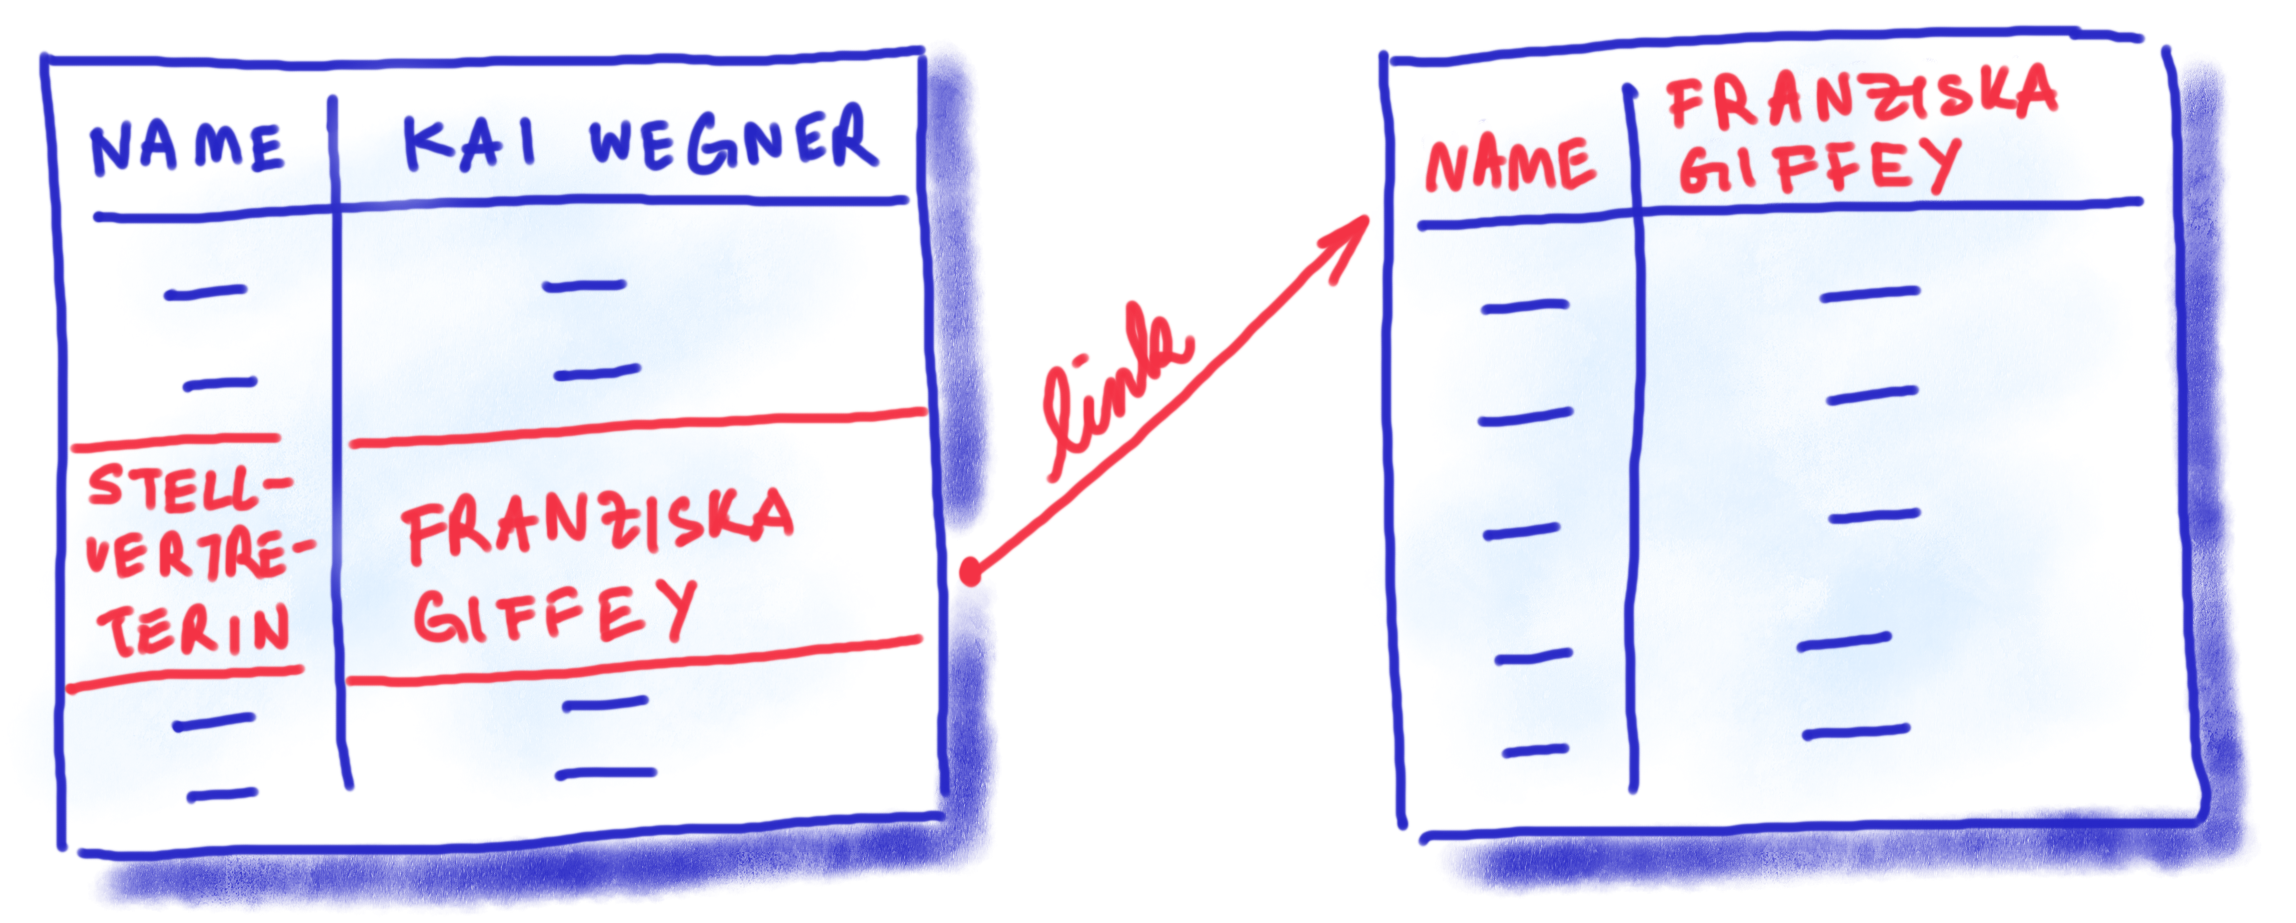 NAME KAI WEGNER
STELL-
VERTRE-
TERIN
FRANZISKA
GIFFEY
link
NAME
FRANZISKA
GIFFEY